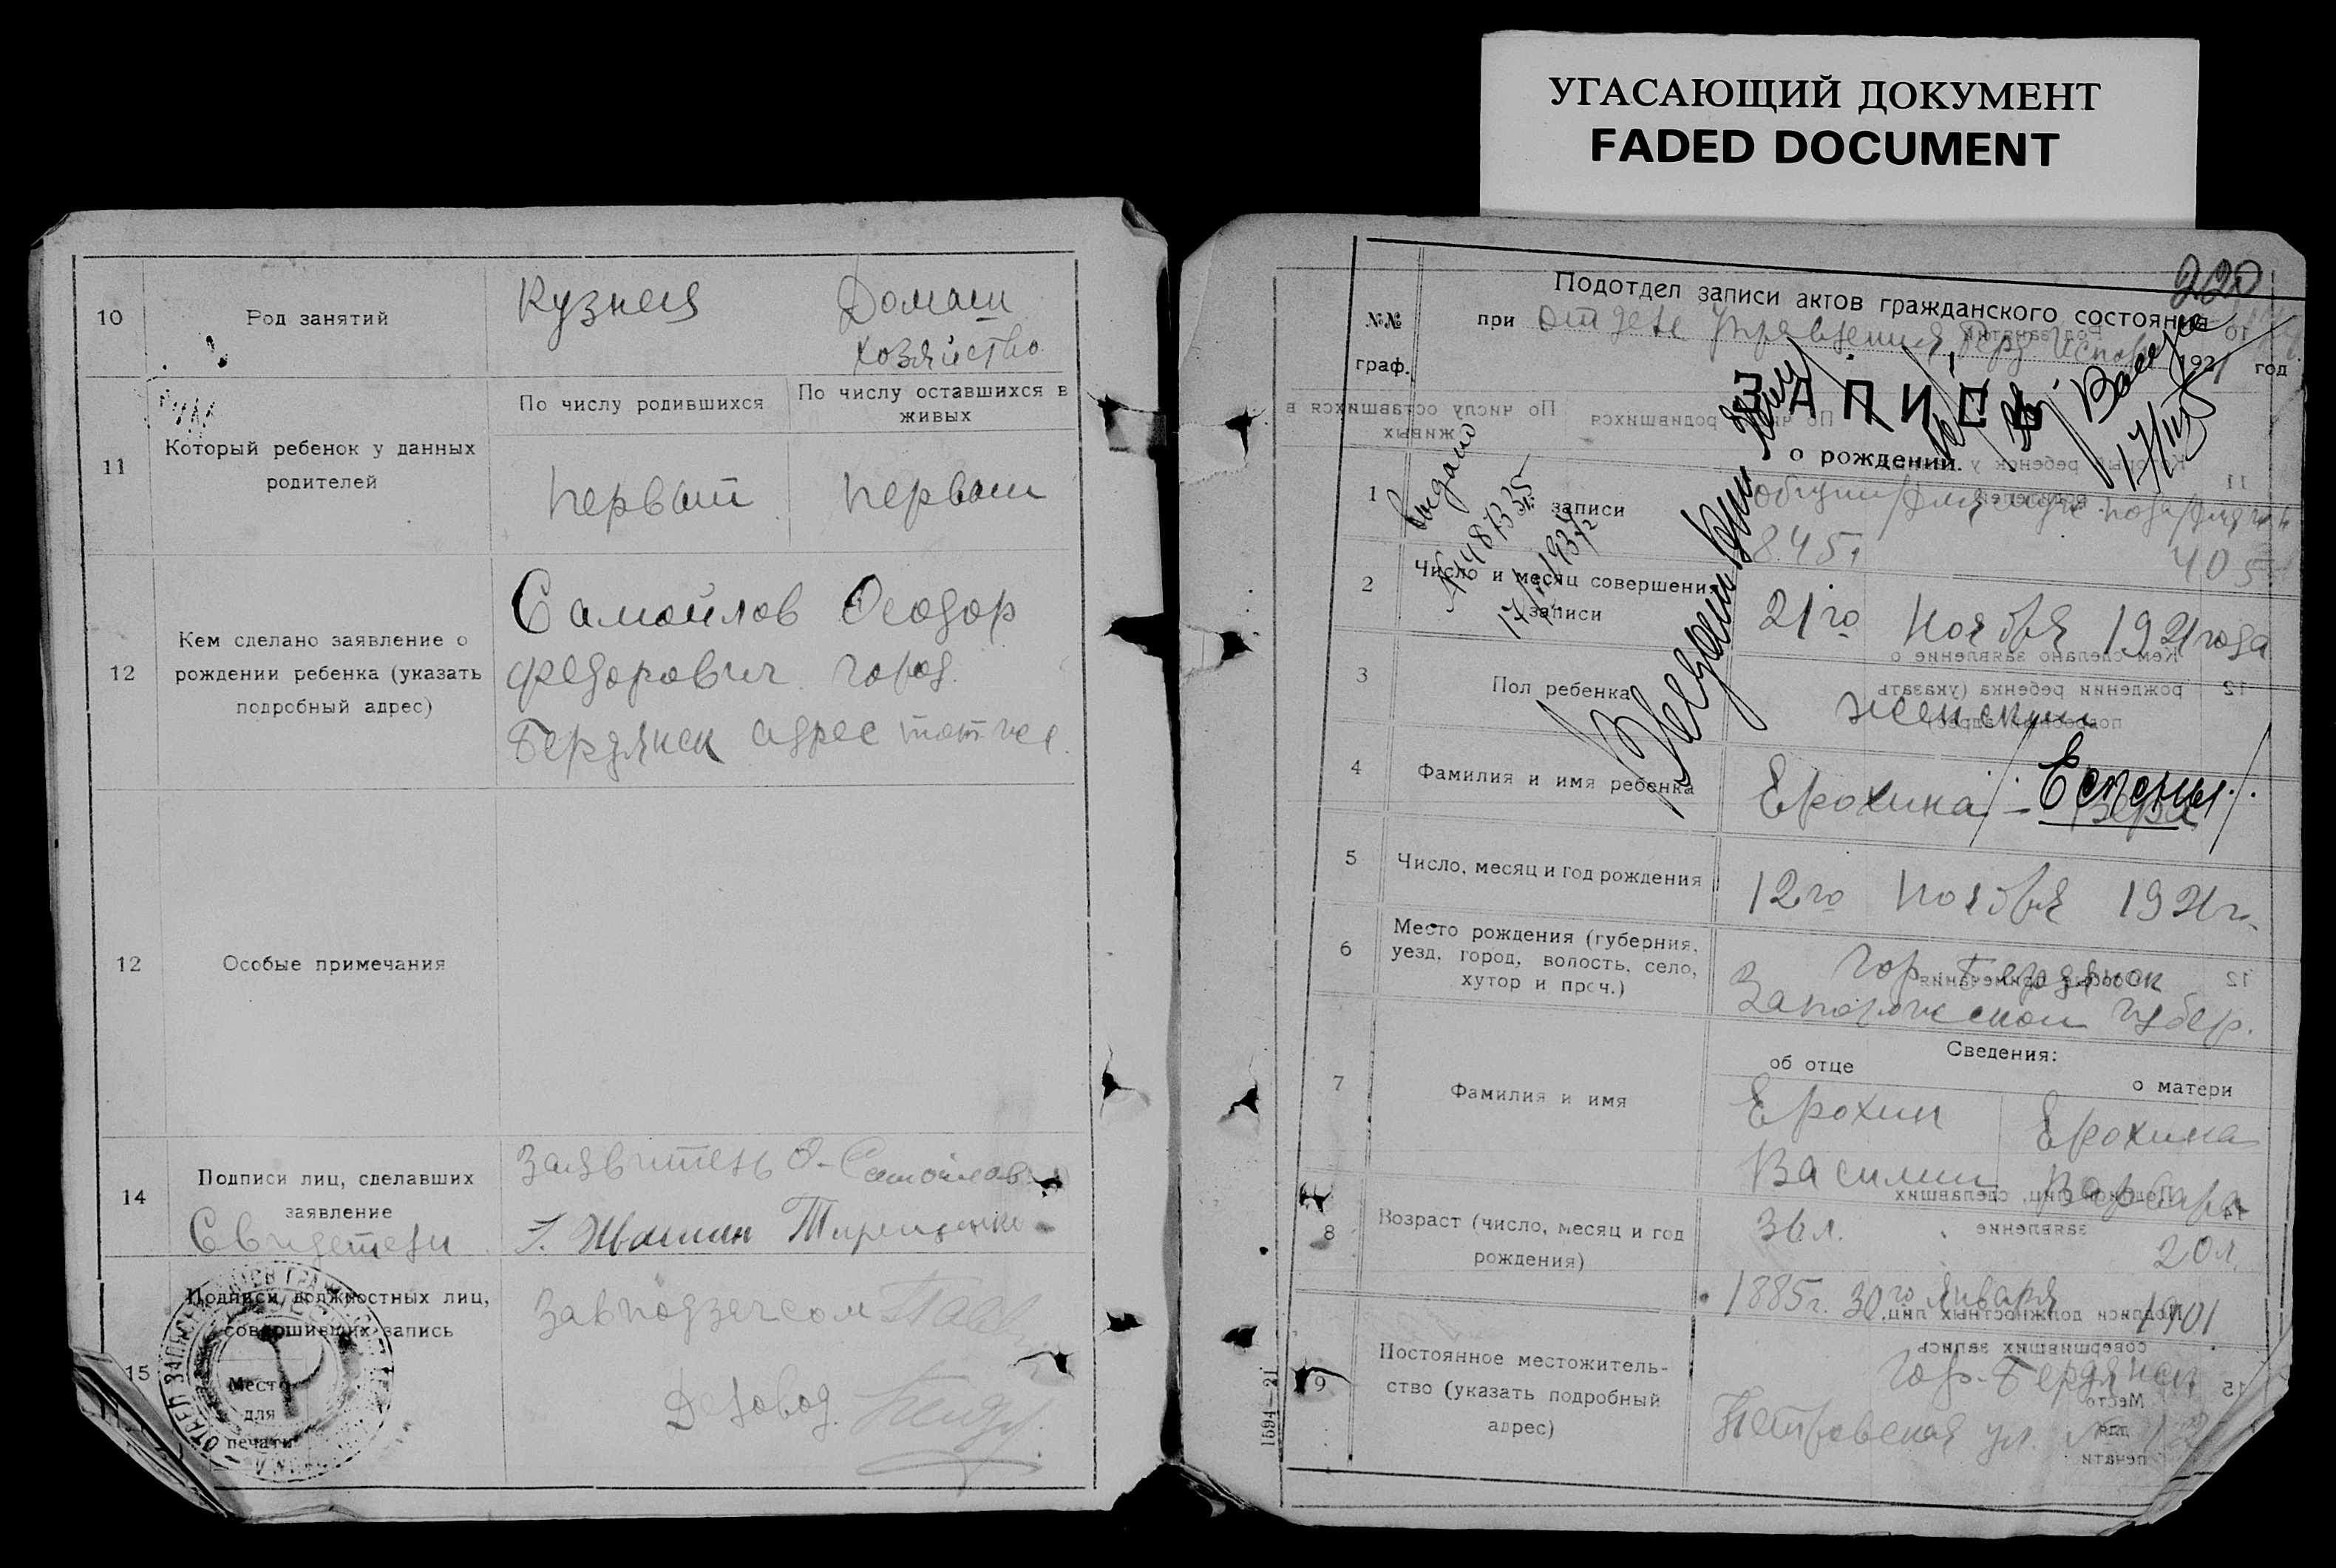 УГАСАЮЩИЙ ДОКУМЕНТ
FADED DOCUMENT
10
Род занятий
Кузнец
Домаш
хозяйство
11
Который ребенок у данных
родителей
По числу родившихся
По числу оставшихся в
живых
первый
первый
12
Кем сделано заявление о
рождении ребенка (указать
подробный адрес)
Самойлов Феодор
Федорович город
Бердянск адрес тот же
12
Особые примечания
14
Подписи лиц, сделавших
заявление
Свидетели
Заявитель Ф. Самойлов
15
Подписи должностных лиц,
совершивших запись
Место
для
печати
Завподзагсом
Деловод
220
Подотдел записи актов гражданского состояния
№№
граф.
при отделе Управления Берд
192 1 год
ЗАПИСЬ
о рождении.
выдано
1
записи
845
405
2
Число и месяц совершения
записи
21го ноября 1921 года
3
Пол ребенка
женский
4
Фамилия и имя ребенка
Ерохина
5
Число, месяц и год рождения
12го ноября 1921 г.
6
Место рождения (губерния,
уезд, город, волость, село,
хутор и проч.)
гор. Бердянск
Запорожской губер.
Сведения:
об отце
о матери
7
Фамилия и имя
Ерохин
Василий
Ерохина
Варвара
8
Возраст (число, месяц и год
рождения)
36 л.
20 л.
1885 г. 30го Января
1901
9
Постоянное местожитель-
ство (указать подробный
адрес)
гор. Бердянск
Петровская ул. №
1594—21